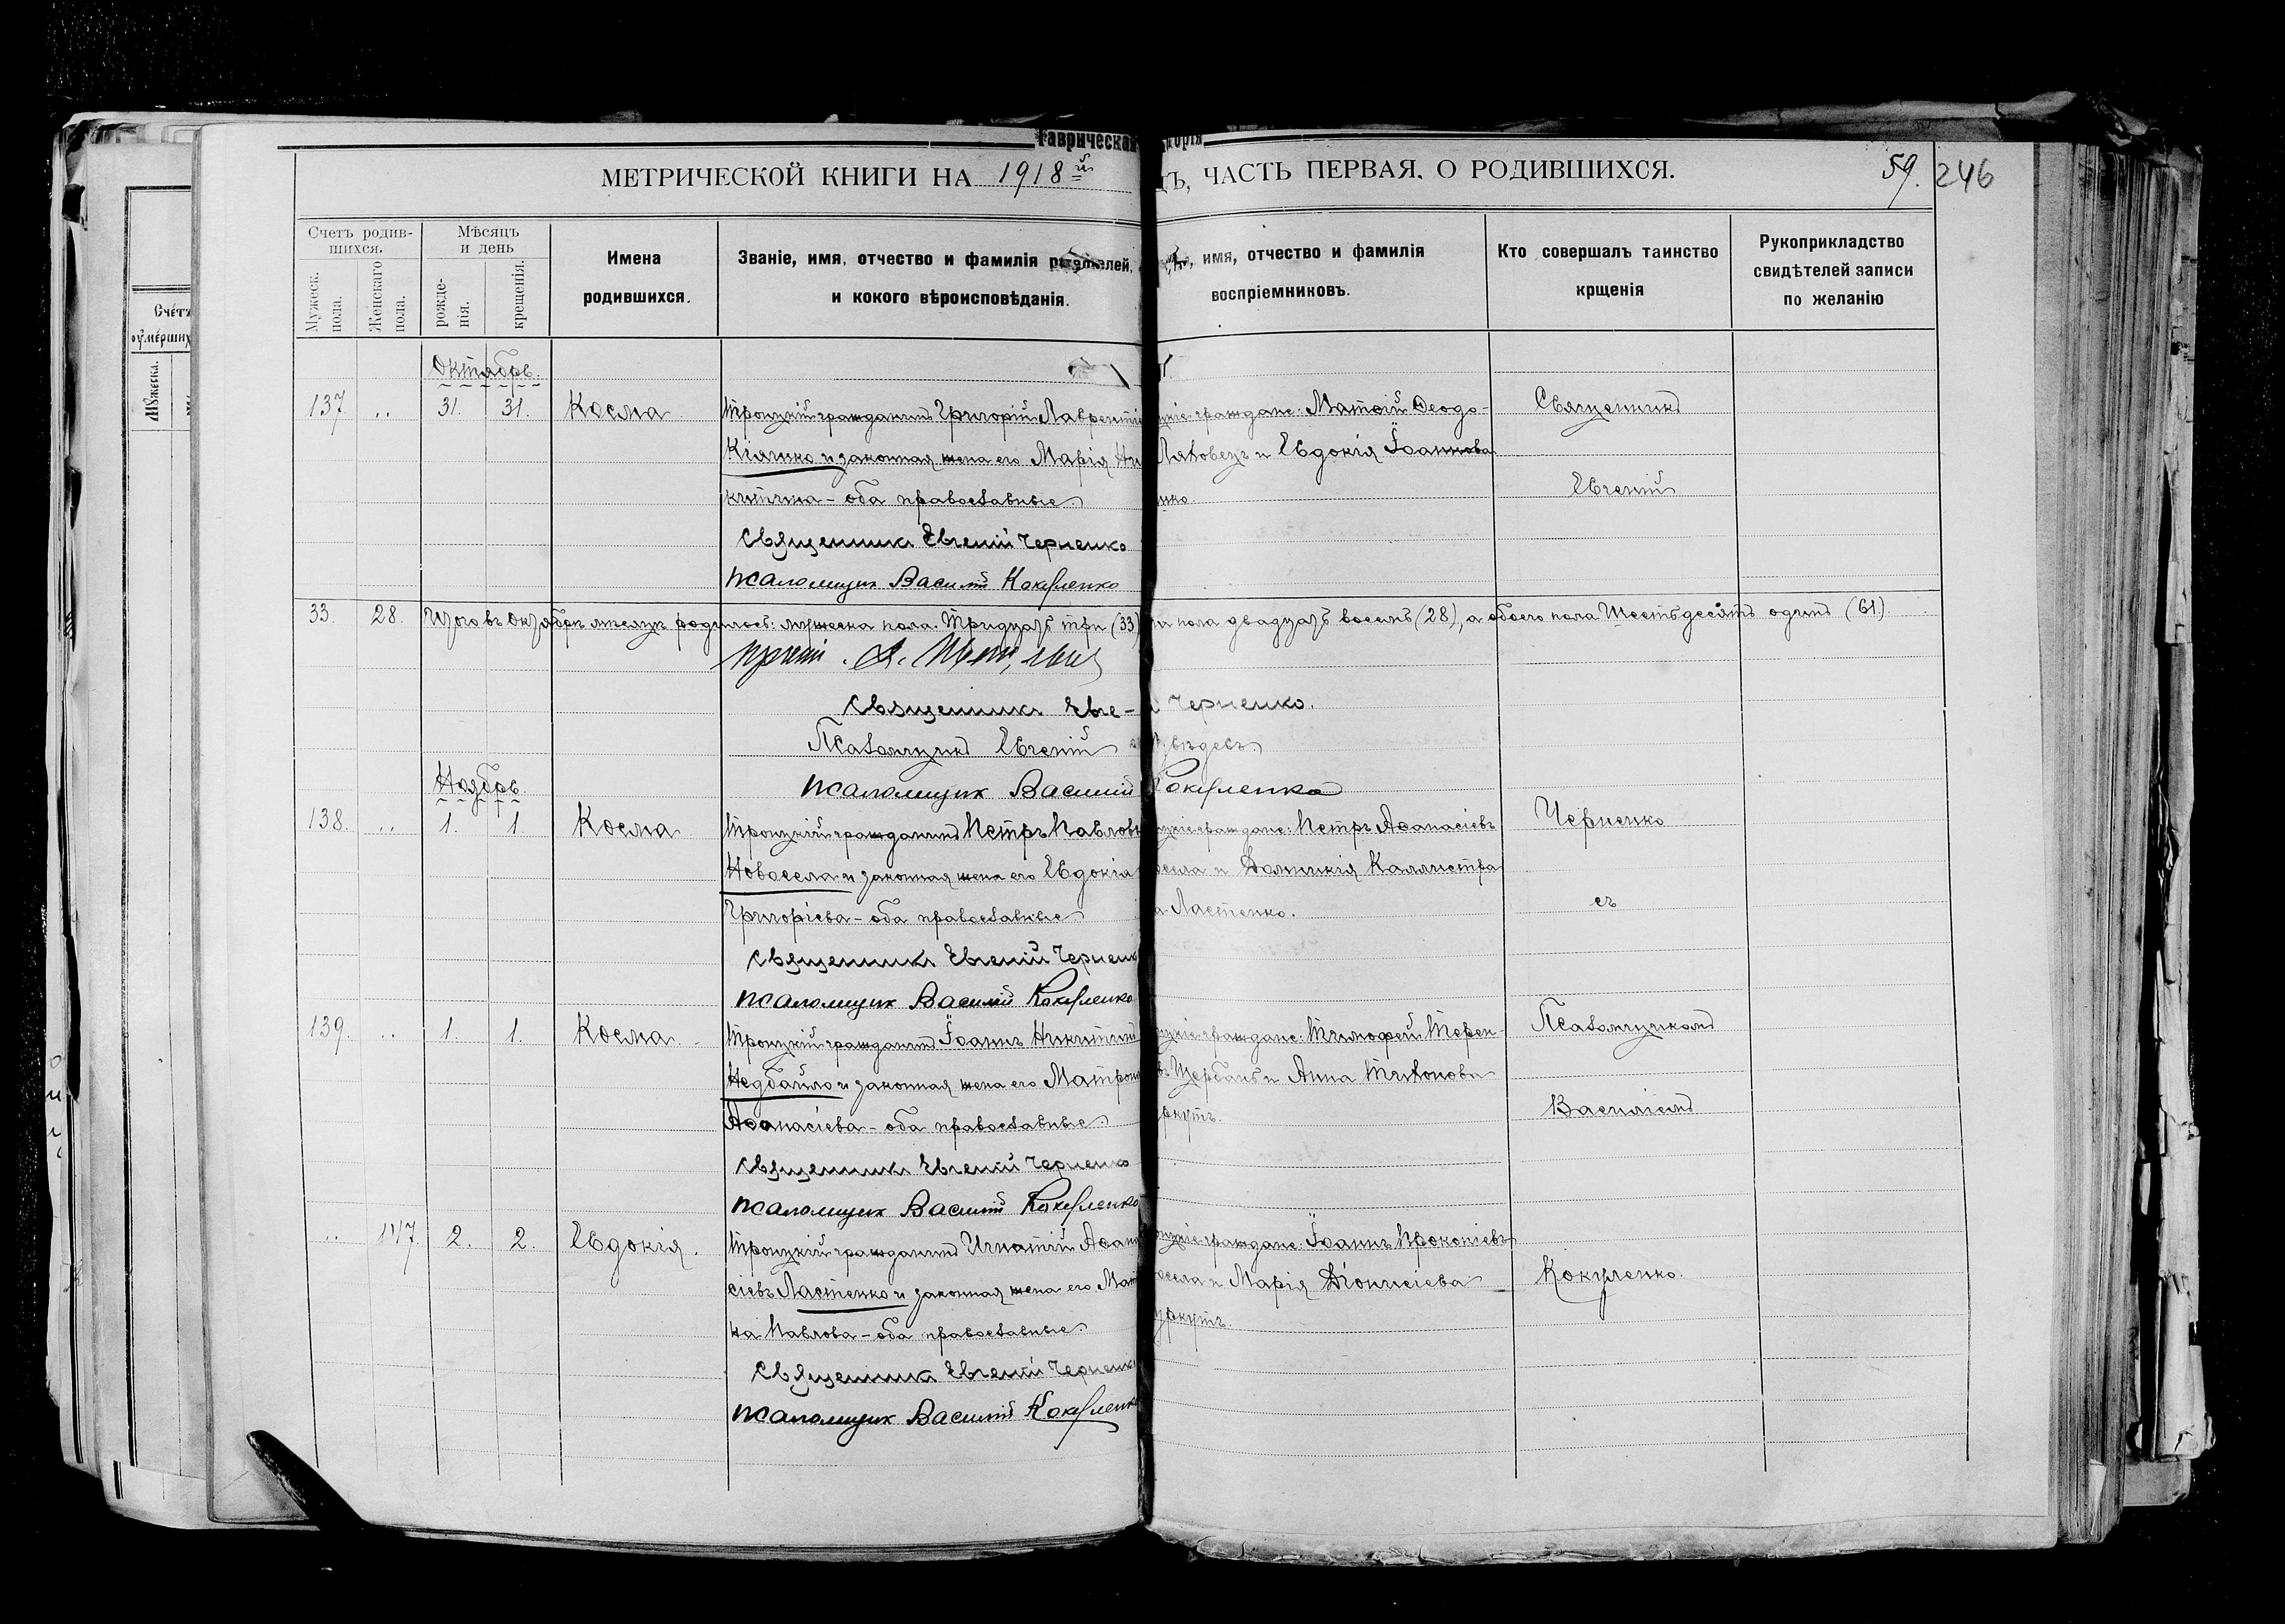 Таврическая
торія
МЕТРИЧЕСКОЙ КНИГИ НА 1918й
ДЪ, ЧАСТЬ ПЕРВАЯ, О РОДИВШИХСЯ.
59. 246
Счетъ родив-
шихся.
Мужеск. пола.
Женскаго пола.
Мѣсяцъ
и день
рожде-
нія.
крещенія.
Имена
родившихся.
Званіе, имя, отчество и фамилія родителей,
и кокого вѣроисповѣданія.
, имя, отчество и фамилія
воспріемниковъ.
Кто совершалъ таинство
крщенія
Рукоприкладство
свидѣтелей записи
по желанію
Счéтъ
Октябрь.
137. .. 31. 31. Косма
Троицкій гражданинъ Григорій Лавренті
Кіяшко и законная жена его Марія Ни
китична - оба православные
Священникъ Евгеній Черненко
псаломщик Василій Кокуленко
цкіе граждане: Матѳій Ѳеодо-
Ляховецъ и Евдокія Іоаннова
нко.
Священникъ
Евгеній
33. 28. Итого въ октябрѣ мѣсяцѣ родилось: мужеска пола тридцать три (33)
пола двадцать восемь (28), а обоего пола шестьдесятъ одинъ (61).
Священникъ Евге- Черненко.
Псаломщикъ Евгеній
псаломщик Василій Кокуленко
Ноябрь.
138. .. 1. 1. Косма
Троицкій гражданинъ Петръ Павловъ
Новосела и законная жена его Евдокія
Григоріева - оба православные
Священникъ Евгеній Черненко
псаломщик Василій Кокуленко
цкіе граждане: Петръ Аѳанасіевъ
осела и Домникія Каллистра
а Ластенко.
Черненко
съ
139. .. 1. 1. Косма.
Троицкій гражданинъ Іоаннъ Никитинъ
Недбайло и законная жена его Матрона
Аѳанасіева - оба православные.
Священникъ Евгеній Черненко
псаломщик Василій Кокуленко
цкіе граждане: Тимофей Терен-
въ Щербань и Анна Тихонова
ркутъ.
Псаломщикомъ
Василіемъ
.. 147. 2. 2. Евдокія.
Троицкій гражданинъ Игнатій Аѳана
сіевъ Ластенко и законная жена его Мат
на Павлова - оба православные.
Священникъ Евгеній Черненко
псаломщик Василій Кокуленко
цкіе граждане: Іоаннъ Прокопіевъ
осела и Марія Діонисіева
уркутъ.
Кокуленко.